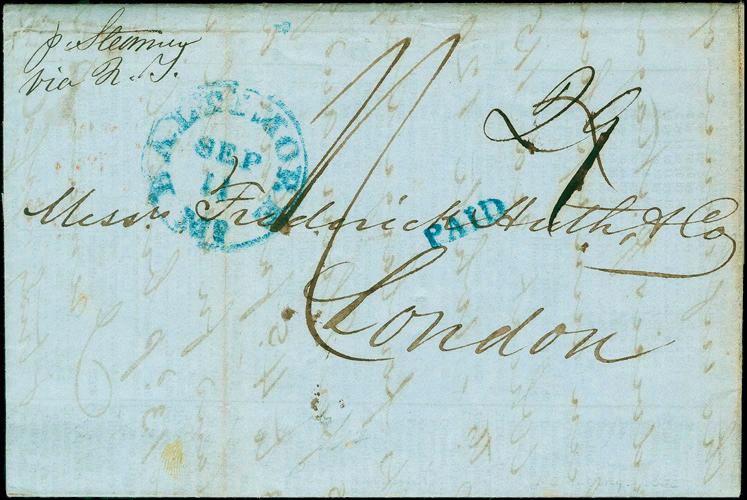 p. Steamer
via N. Y.
BALTIMORE
SEP
11
MD
29
PAID
Messrs. Frederick Huth, & Co
London